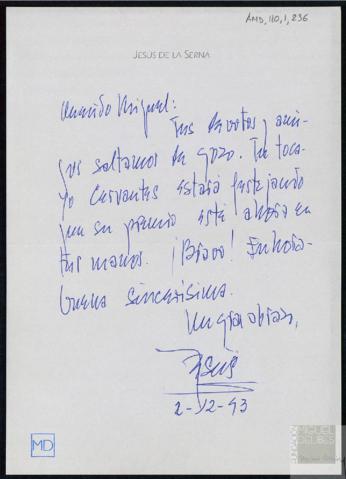 AMD, 110, 1, 236
JESÚS DE LA SERNA
Querido Miguel:
Tus devotos y ami-
gos saltamos de gozo. Tu toca-
yo Cervantes estará festejando
que su premio esté ahora en
tus manos. ¡Bravo! Enhora-
buena sincerísima.
Un gran abrazo,
Jesús
2-12-93
MD
FUNDACIÓN
MIGUEL
DELIBES